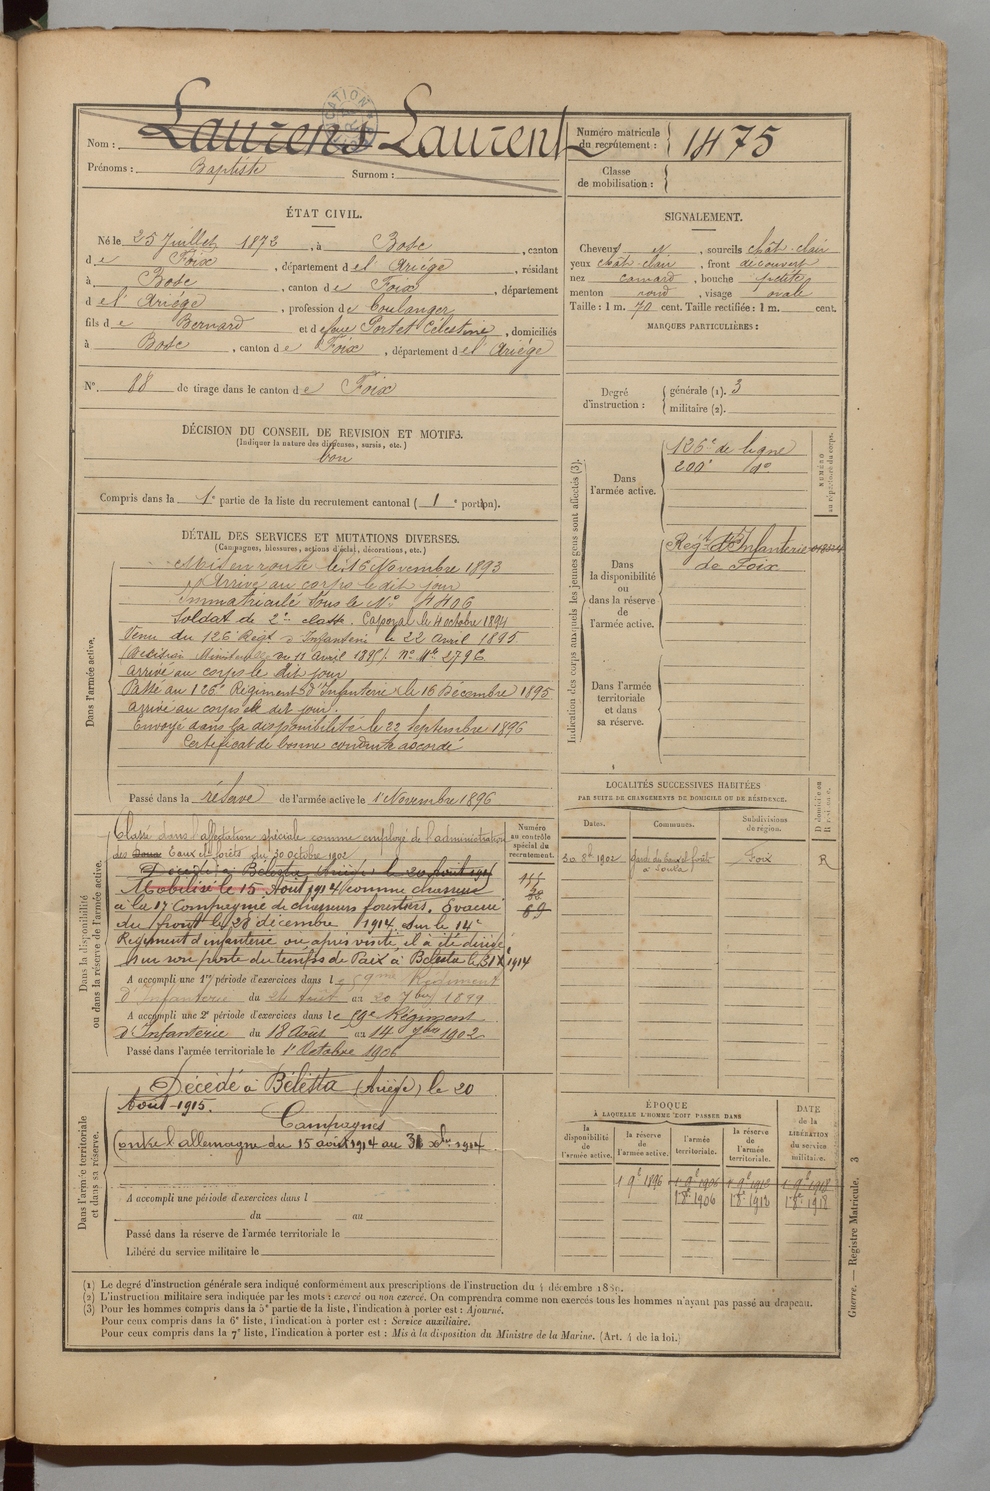 Nom : Laurens Laurent
Prénoms : Baptiste Surnom :
Numéro matricule du recrutement : 1475
Classe de mobilisation :
ÉTAT CIVIL.
Né le 25 Juillet 1873, à Bosc, canton
de Foix, département de l'Ariége, résidant
à Bosc, canton de Foix, département
de l'Ariége, profession de boulanger
fils de Bernard et de feue Portet Célestine, domiciliés
à Bosc, canton de Foix, département de l'Ariége
N° 88 de tirage dans le canton de Foix
DÉCISION DU CONSEIL DE REVISION ET MOTIFS.
(Indiquer la nature des dispenses, sursis, etc.)
bon
Compris dans la 1e partie de la liste du recrutement cantonal (1e portion).
SIGNALEMENT.
Cheveux et, sourcils chât-clair
yeux chât-clair, front découvert
nez camard, bouche petite
menton rond, visage ovale
Taille : 1 m. 70 cent. Taille rectifiée : 1 m. cent.
MARQUES PARTICULIÈRES :
Degré d'instruction : générale (1). 3
militaire (2).
DÉTAIL DES SERVICES ET MUTATIONS DIVERSES.
(Campagnes, blessures, actions d'éclat, décorations, etc.)
Dans l'armée active.
Mis en route le 16 Novembre 1893
Arrivé au corps le dit jour
Immatriculé sous le N° 4406
Soldat de 2e classe. Caporal le 4 octobre 1894
Venu du 126e Régt d'Infanterie le 22 avril 1895
(décision Ministlle du 11 avril 1895). N° Mle 2796
arrivé au corps le dit jour
Passé au 126e Régiment d'Infanterie le 16 Décembre 1895
arrivé au corps le dit jour.
Envoyé dans la disponibilité le 22 Septembre 1896
Certificat de bonne conduite accordé
Passé dans la réserve de l'armée active le 1 Novembre 1896
Indication des corps auxquels les jeunes gens sont affectés (3).
NUMÉRO au répertoire du corps.
Dans l'armée active.
126e de ligne
200e do
Dans la disponibilité ou dans la réserve de l'armée active.
Régt d'Infanterie
de Foix
Dans l'armée territoriale et dans sa réserve.
LOCALITÉS SUCCESSIVES HABITÉES
PAR SUITE DE CHANGEMENTS DE DOMICILE OU DE RÉSIDENCE.
Dates. Communes. Subdivisions de région.
30 8bre 1902 garde des eaux et forêts à Foix R
Dans la disponibilité ou dans la réserve de l'armée active.
Numéro au contrôle spécial du recrutement.
Classé dans l'affectation spéciale comme employé de l'administration
des Eaux et forêts du 30 octobre 1902
Décédé à Bélesta, Ariège, le 20 Août 1915
Mobilisé le 15 Août 1914 comme chasseur
à la 17 Compagnie de chasseurs forestiers. Evacué
du front le 28 décembre 1914 sur le 14e
Régiment d'infanterie où après visite, il a été dirigé
sur son poste du temps de Paix à Bélesta le 31 Xe 1914
A accompli une 1re période d'exercices dans le 59me Régiment
d'Infanterie du 24 Août au 20 7bre 1899
A accompli une 2e période d'exercices dans le 59e Régiment
d'Infanterie du 18 Août au 14 7bre 1902
Passé dans l'armée territoriale le 1er Octobre 1906
Dans l'armée territoriale et dans sa réserve.
Décédé à Bélesta (Ariège) le 20
Août 1915.
Campagnes
Contre l'allemagne du 15 août 1914 au 31 Xbre 1914
A accompli une période d'exercices dans l
du au
Passé dans la réserve de l'armée territoriale le
Libéré du service militaire le
ÉPOQUE
À LAQUELLE L'HOMME DOIT PASSER DANS
la disponibilité de l'armée active. la réserve de l'armée active. l'armée territoriale. la réserve de l'armée territoriale.
DATE de la LIBÉRATION du service militaire.
1 9e 1896 1 9e 1906 1 9e 1912 1 9e 1918
1 8e 1906 1 8e 1912 1 8e 1918
(1) Le degré d'instruction générale sera indiqué conformément aux prescriptions de l'instruction du 4 décembre 1889.
(2) L'instruction militaire sera indiquée par les mots : exercé ou non exercé. On comprendra comme non exercés tous les hommes n'ayant pas passé au drapeau.
(3) Pour les hommes compris dans la 5e partie de la liste, l'indication à porter est : Ajourné.
Pour ceux compris dans la 6e liste, l'indication à porter est : Service auxiliaire.
Pour ceux compris dans la 7e liste, l'indication à porter est : Mis à la disposition du Ministre de la Marine. (Art. 4 de la loi.)
Guerre. — Registre Matricule. 3